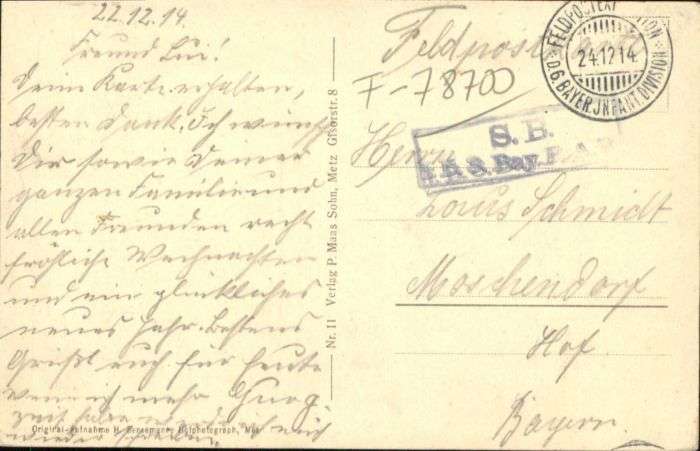 22.12.14.
Freund Lui!
Deine Karte erhalten,
besten Dank. Ich wünsche
Dir sowie Deiner
ganzen Familie und
allen Freunden recht
fröhliche Weihnachten
und ein glückliches
neues Jahr. Bestens
Grüßt euch für heute
wenn ich mehr
Zeit habe werde ich
wieder schreiben.
Original-Aufnahme H. Hofphotograph, Metz
Nr. 11 Verlag P. Maas Sohn, Metz Gisorstr. 8
Feldpost
F-78700
FELDPOSTEXPEDITION
24.12.14
D.6.BAYER.INFANT.DIVISION
S. B.
Bay.
Herrn
Louis Schmidt
Moschendorf
Hof
Bayern.